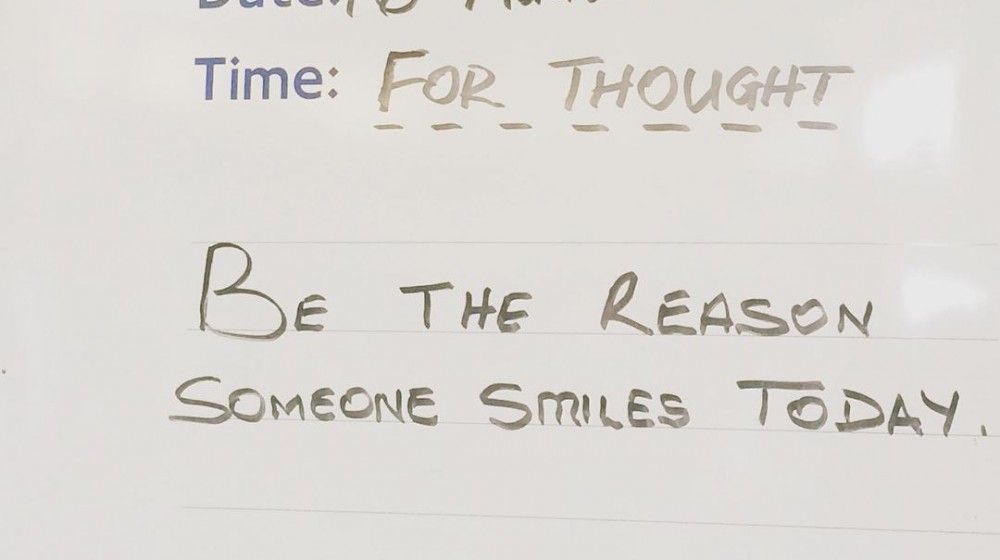 Date:
Time: FOR THOUGHT
BE THE REASON
SOMEONE SMILES TODAY.